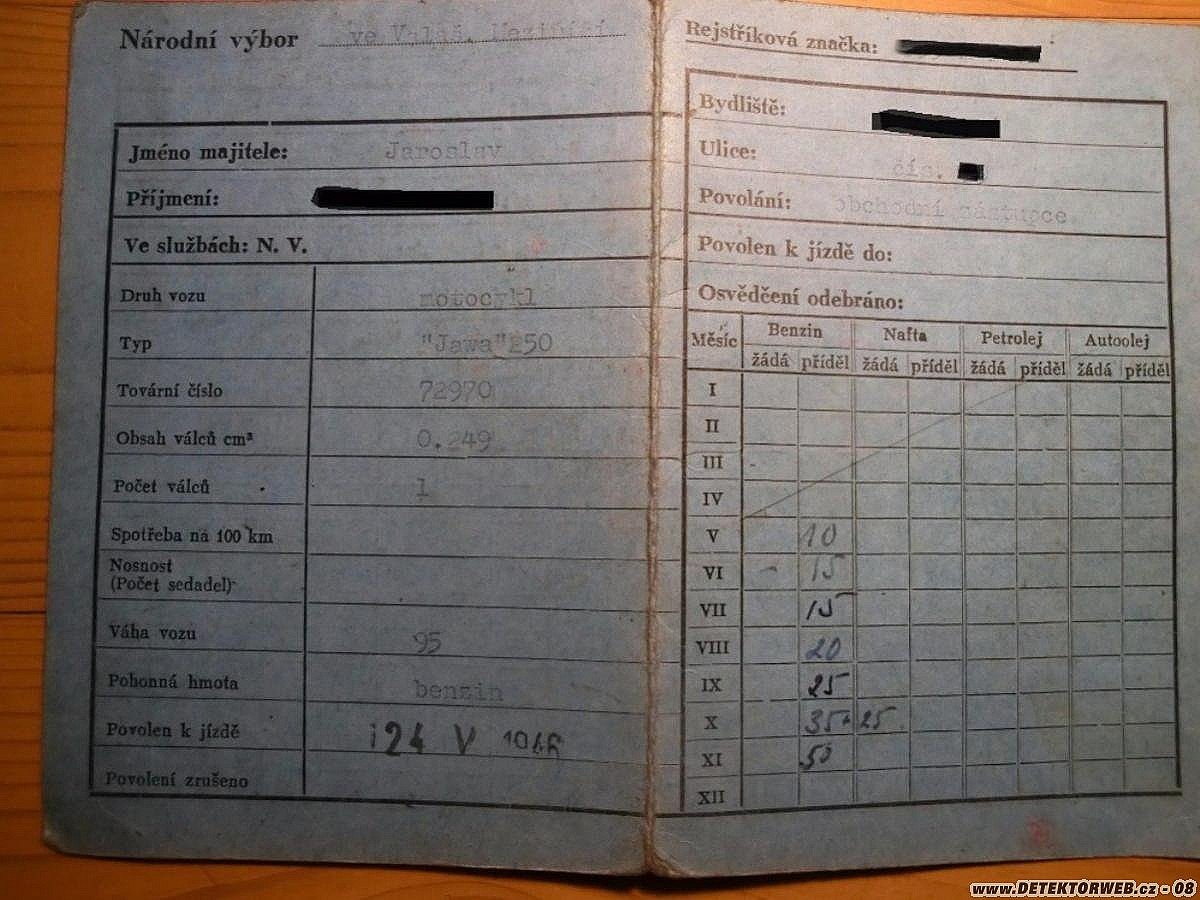 Národní výbor ve Valaš. Meziříčí
Jméno majitele: Jaroslav
Příjmení:
Ve službách: N. V.
Druh vozu motocykl
Typ "Jawa"250
Tovární číslo 72970
Obsah válců cm³ 0.249
Počet válců 1
Spotřeba na 100 km
Nosnost
(Počet sedadel)
Váha vozu 95
Pohonná hmota benzin
Povolen k jízdě 24 V 1946
Povolení zrušeno
Rejstříková značka:
Bydliště:
Ulice: čís.
Povolání: obchodní zástupce
Povolen k jízdě do:
Osvědčení odebráno:
Měsíc Benzin Nafta Petrolej Autoolej
žádá příděl žádá příděl žádá příděl žádá příděl
I
II
III
IV
V 10
VI 15
VII 15
VIII 20
IX 25
X 35+25
XI 50
XII
www.DETEKTORWEB.cz - 08